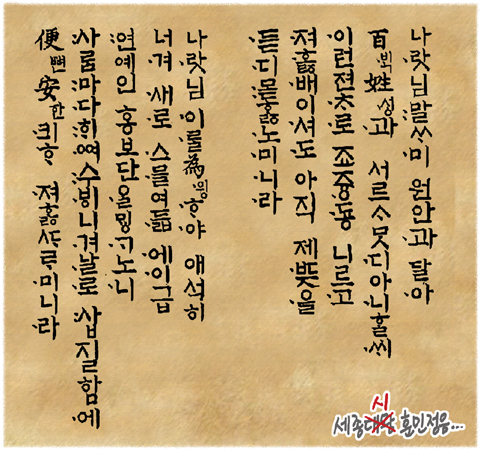 나랏님 말ᄊᆞ미 원안과 달아
百ᄇᆡᆨ姓셩과 서르ᄉᆞᄆᆞᆺ디아니ᄒᆞᆯᄊᆡ
이런젼ᄎᆞ로 조즁동 니르고
져ᄒᆞᇙ배이셔도 아직 제ᄠᅳᆺ을
듣디몯ᄒᆞᇙ노미니라
나랏님 이ᄅᆞᆯ爲윙ᄒᆞ야 애석히
너겨 새로 스믈여듧 에이급
연예인 홍보단ᄋᆞᆯᄆᆡᇰᄀᆞ노니
사ᄅᆞᆷ마다ᄒᆡᅇᅧ수ᄫᅵ니겨날로 삽질함에
便뼌安한킈ᄒᆞ 져ᄒᆞᇙᄯᆞᄅᆞ미니라
시
세종 훈민정음...